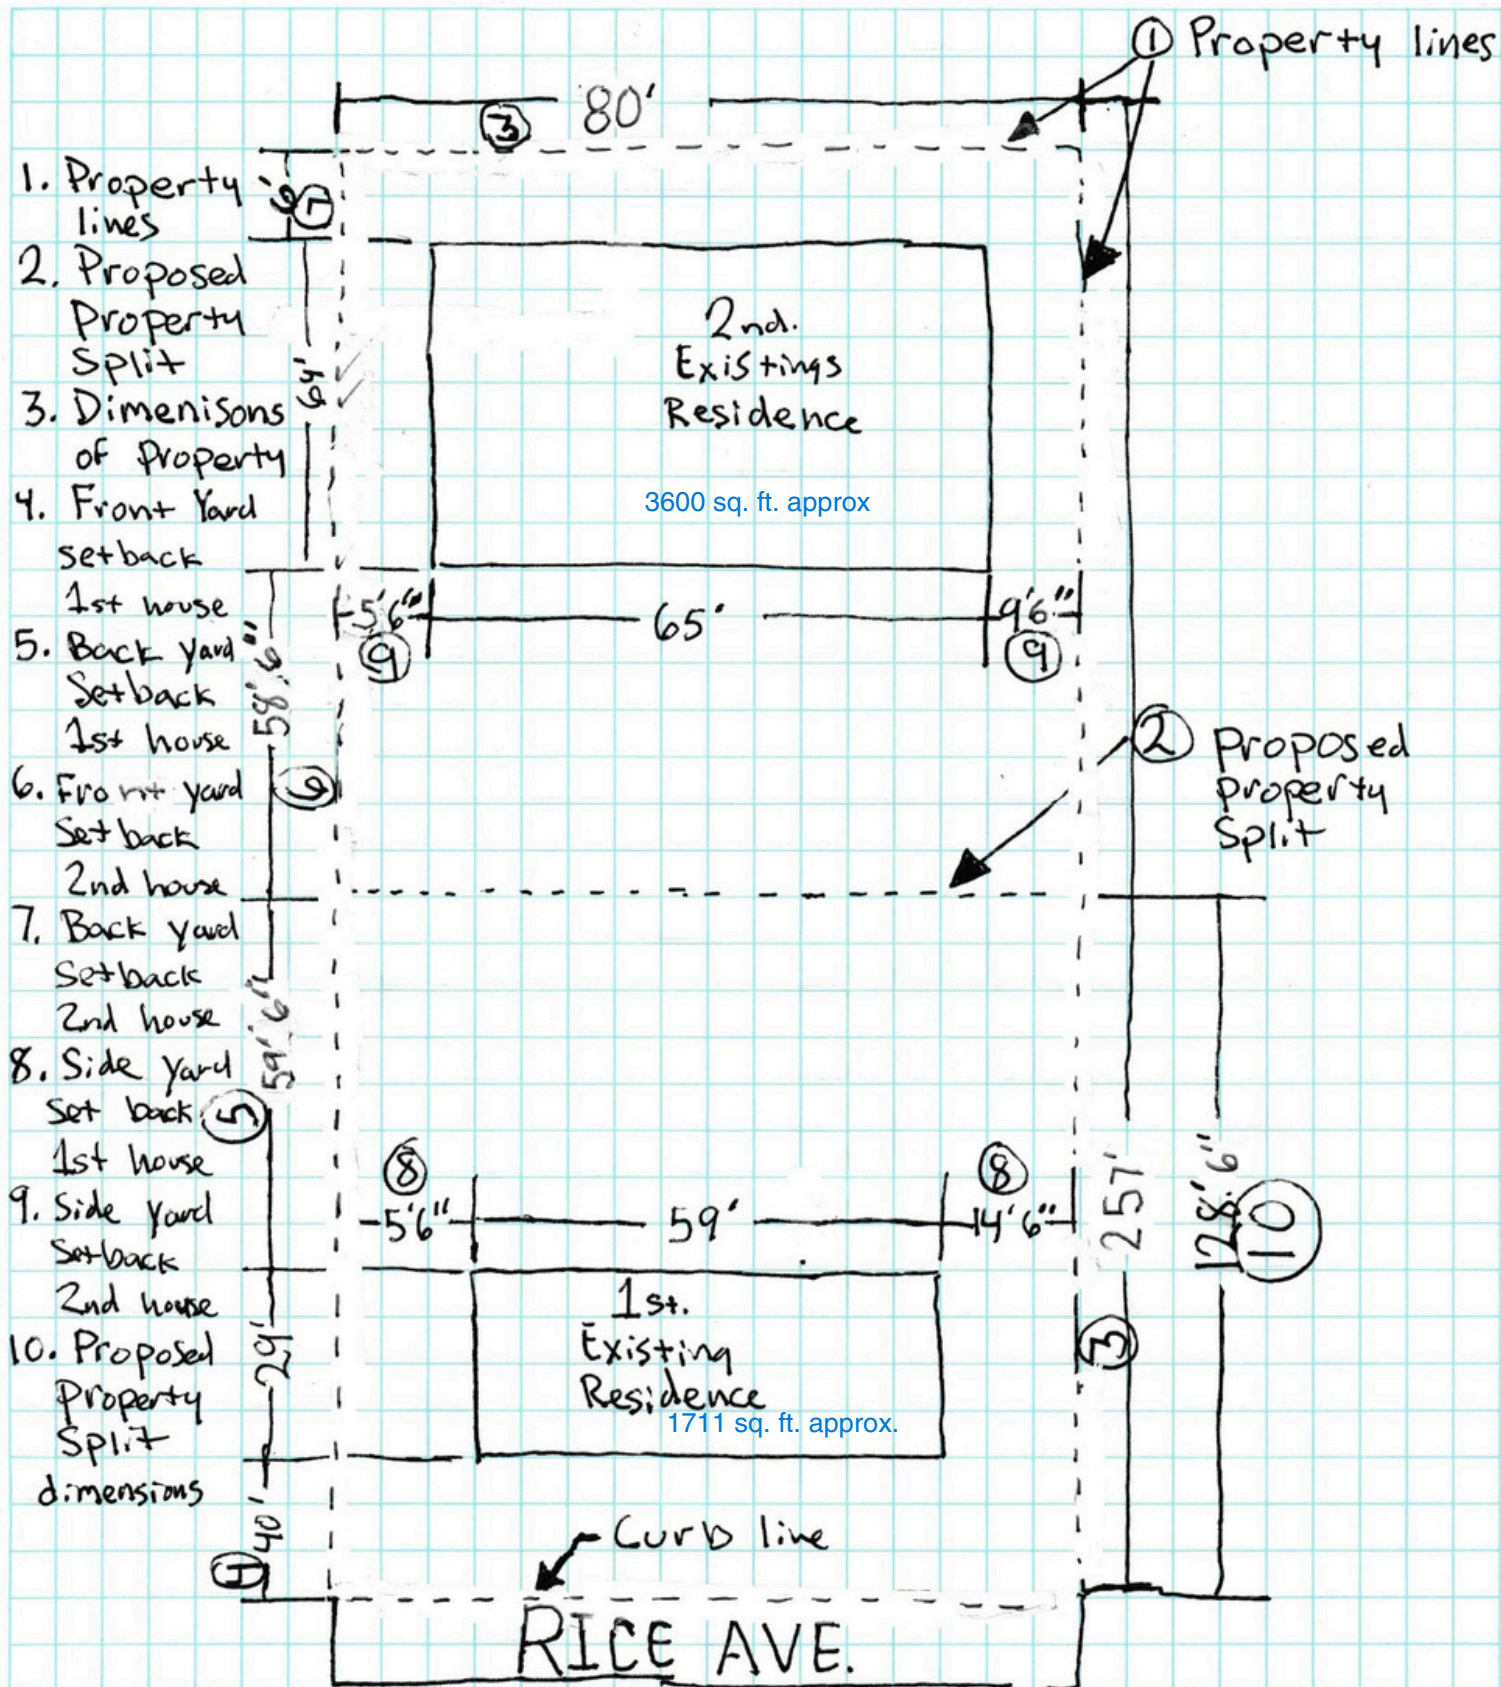 ① Property lines
80'
③
1. Property
lines
2. Proposed
Property
Split
3. Dimenisons
of Property
4. Front Yard
setback
1st house
5. Back yard
Setback
1st house
6. Front yard
Setback
2nd house
7. Back yard
Setback
2nd house
8. Side yard
Set back
1st house
9. Side yard
Setback
2nd house
10. Proposed
Property
Split
dimensions
6'
⑦
64'
2nd.
Existings
Residence
3600 sq. ft. approx
5'6"
65'
9'6"
⑨
⑨
58'6"
⑥
② Proposed
property
Split
59'6"
⑤
⑧
⑧
5'6"
59'
14'6"
257'
③
128'6"
⑩
29'
1st.
Existing
Residence
1711 sq. ft. approx.
40'
④
Curb line
RICE AVE.